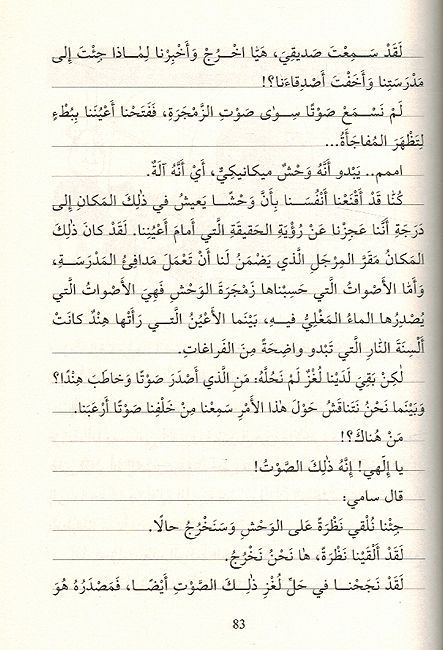 لَقَدْ سَـمِعْتَ صَديقِيَ، هَيّٰا اخْـرُجْ وَأَخْبِرْنا لِمٰـاذا جِئْتَ إِلى
مَدْرَسَتِنا وَأَخَفْتَ أَصْدِقاءَنا؟!
لَمْ نَسْـمَعْ صَوْتًا سِـوٰى صَوْتِ الزَّمْجَرَةِ، فَفَتَحْنا أَعْيُنَنا بِبُطْءٍ
لِتَظْهَرَ المُفاجَأَةُ...
امـمم.. يَبْدو أَنَّهُ وَحْشٌ ميكانيكِيٌّ، أَيْ أَنَّهُ آلَةٌ.
كُنّٰا قَدْ أَقْنَعْنا أَنْفُسَـنا بِأَنَّ وَحْشًـا يَعيشُ في ذٰلِكَ المَكانِ إِلى
دَرَجَةِ أَنَّنا عَجِزْنا عَنْ رُؤْيَةِ الحَقيقَةِ الَّتي أَمامَ أَعْيُنِنا. لَقَدْ كانَ ذٰلِكَ
المَكانُ مَقَرَّ المِرْجَلِ الَّذي يَضْمَنُ لَنا أَنْ تَعْمَلَ مَدافِئُ المَدْرَسَـةِ،
وَأَمّا الأَصْواتُ الَّتي حَسِبْناها زَمْجَرَةَ الوَحْشِ فَهِيَ الأَصْواتُ الَّتي
يُصْدِرُها الماءُ المَغْلِيُّ فيـهِ، بَيْنَما الأَعْيُنُ الَّتـي رَأَتْها هِنْدٌ كانَتْ
أَلْسِنَةَ النّارِ الَّتي تَبْدو واضِحَةً مِنَ الفَراغاتِ.
لٰكِنْ بَقِيَ لَدَيْنا لُغْزٌ لَمْ نَحُلَّهُ: مَنِ الَّذي أَصْدَرَ صَوْتًا وَخاطَبَ هِنْدًا؟
وَبَيْنَما نَحْنُ نَتَناقَشُ حَوْلَ هٰذا الأَمْرِ سَمِعْنا مِنْ خَلْفِنا صَوْتًا أَرْعَبَنا.
مَنْ هُناكَ؟!
يا إِلٰهي! إِنَّهُ ذٰلِكَ الصَّوْتُ!
قال سامي:
جِئْنا نُلْقي نَظْرَةً عَلى الوَحْشِ وَسَنَخْرُجُ حالًا.
لَقَدْ أَلْقَيْنا نَظْرَةً، هٰا نَحْنُ نَخْرُجُ.
لَقَدْ نَجَحْنـا في حَلِّ لُغْزِ ذٰلِـكَ الصَّوْتِ أَيْضًـا، فَمَصْدَرُهُ هُوَ
83